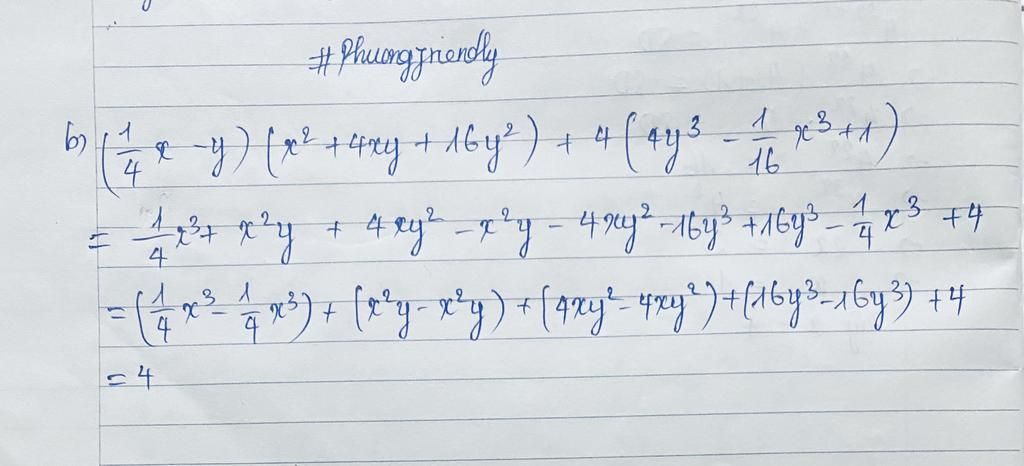 #Phuongfriendly
b) (1/4 x - y) (x² + 4xy + 16y²) + 4 (4y³ - 1/16 x³ + 1)
= 1/4 x³ + x²y + 4xy² - x²y - 4xy² - 16y³ + 16y³ - 1/4 x³ + 4
= (1/4 x³ - 1/4 x³) + (x²y - x²y) + (4xy² - 4xy²) + (16y³ - 16y³) + 4
= 4